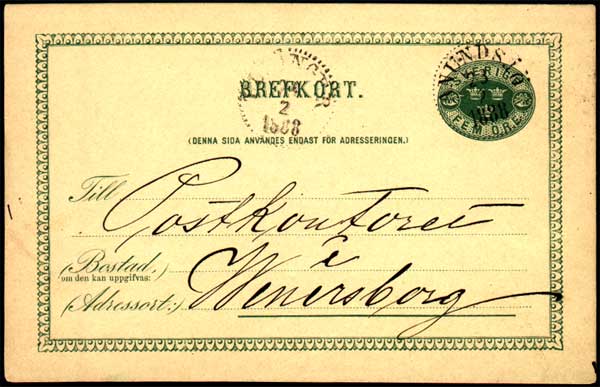 BREFKORT.
2
1888
SVERIGE
1888
FEM ÖRE
(DENNA SIDA ANVÄNDES ENDAST FÖR ADRESSERINGEN.)
Till Postkontoret
(Bostad.) i
om den kan uppgifvas:
(Adressort:) Wenersborg